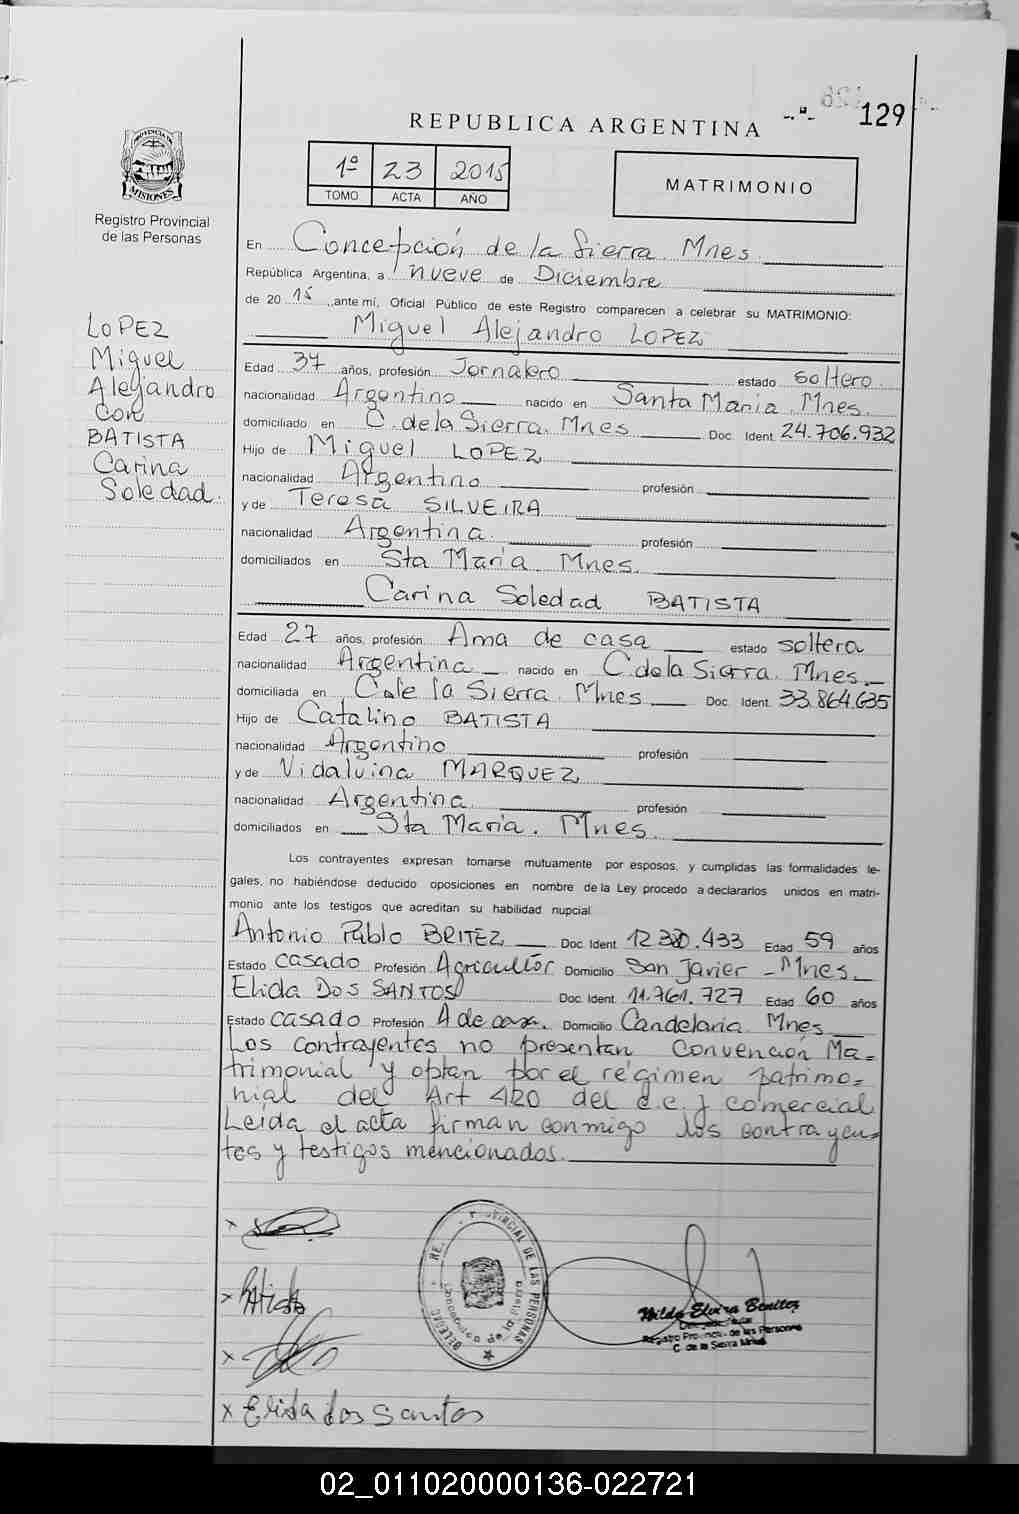 129
REPUBLICA ARGENTINA
PROVINCIA DE
MISIONES
Registro Provincial
de las Personas
1º 23 2015
TOMO ACTA AÑO
MATRIMONIO
En Concepción de la Sierra. Mnes.
República Argentina, a nueve de Diciembre
de 20 15 ,ante mí, Oficial Público de este Registro comparecen a celebrar su MATRIMONIO:
Miguel Alejandro LOPEZ
LOPEZ
Miguel
Alejandro
con
BATISTA
Carina
Soledad.
Edad 37 años, profesión Jornalero estado soltero.
nacionalidad Argentino nacido en Santa Maria. Mnes.
domiciliado en C. de la Sierra. Mnes Doc. Ident. 24.706.932
Hijo de Miguel LOPEZ
nacionalidad Argentino profesión
y de Teresa SILVEIRA
nacionalidad Argentina. profesión
domiciliados en Sta Maria. Mnes.
Carina Soledad BATISTA
Edad 27 años, profesión Ama de casa estado soltera
nacionalidad Argentina nacido en C. de la Sierra. Mnes.
domiciliada en C. de la Sierra. Mnes Doc. Ident. 33.864.635
Hijo de Catalino BATISTA
nacionalidad Argentino profesión
y de Vidalvina MARQUEZ
nacionalidad Argentina. profesión
domiciliados en Sta Maria. Mnes.
Los contrayentes expresan tomarse mutuamente por esposos, y cumplidas las formalidades le-
gales, no habiéndose deducido oposiciones en nombre de la Ley procedo a declararlos unidos en matri-
monio ante los testigos que acreditan su habilidad nupcial
Antonio Pablo BRITEZ Doc. Ident. 433 Edad 59 años
Estado casado Profesión Agricultor Domicilio San Javier - Mnes.
Elida DOS SANTOS Doc. Ident. 11.761.727 Edad 60 años
Estado casado Profesión A de casa. Domicilio Candelaria. Mnes
Los contrayentes no presentan Convención Ma=
trimonial y optan por el régimen patrimo=
nial del Art 420 del c.c. y comercial
Leída el acta firman conmigo los contrayen=
tes y testigos mencionados.
x
x Batista
x
x Elida dos Santos
PROVINCIAL DE LAS PERSONAS
DELEGAC.
Concepción de la Sierra
Nilda Elvira Benitez
Registro Provincial de las Personas
C. de la Sierra Mnes
02_011020000136-022721